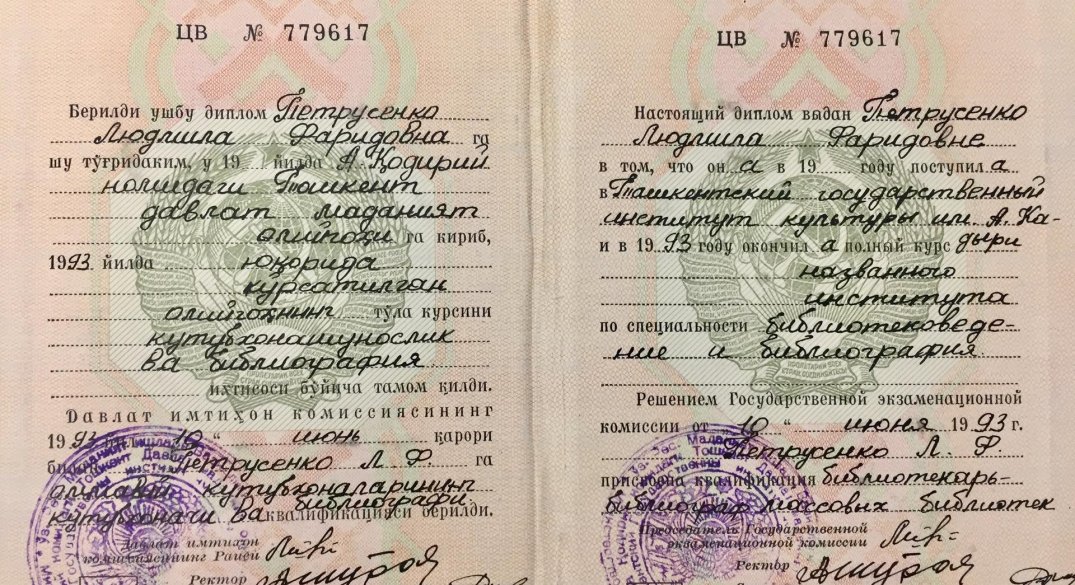 ЦВ № 779617
Берилди ушбу диплом Петрусенко
Людмила Фаридовна га
шу тўғридаким, у 19 йилда А. Қодирий
номидаги Тошкент
давлат маданият
олийгоҳи га кириб,
1993 йилда юқорида
курсатилган
олийгоҳнинг тўла курсини
кутубхонашунослик
ва библиография
ихтисоси бўйича тамом қилди.
Давлат имтиҳон комиссиясининг
1993 10 " июнь қарори
Петрусенко Л. Ф. га
оммавий кутубхоналарнинг
кутубхоначи ва библиографи
квалификацияси берилди.
Давлат имтиҳон
комиссиясининг Раиси
Ректор
ЦВ № 779617
Настоящий диплом выдан Петрусенко
Людмила Фаридовне
в том, что он а в 19 году поступил а
в Ташкентский государственный
институт культуры им. А. Ка-
дыри
и в 1993 году окончил а полный курс
названного
института
по специальности библиотековеде-
ние и библиография
Решением Государственной экзаменационной
комиссии от "10" июня 1993 г.
Петрусенко Л. Ф.
присвоена квалификация библиотекарь-
библиограф массовых библиотек
Председатель Государственной
экзаменационной комиссии
Ректор